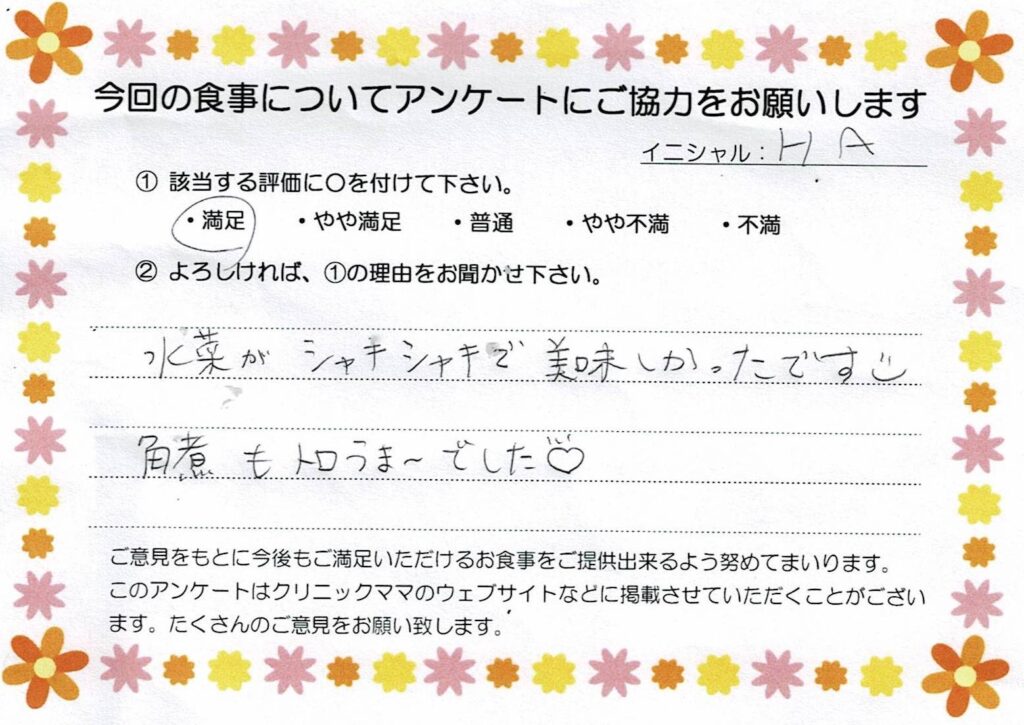 今回の食事についてアンケートにご協力をお願いします
イニシャル：H A
① 該当する評価に〇を付けて下さい。
・満足 ・やや満足 ・普通 ・やや不満 ・不満
② よろしければ、①の理由をお聞かせ下さい。
水菜が シャキシャキで 美味しかったです
角煮 も トロうま〜 でした♡
ご意見をもとに今後もご満足いただけるお食事をご提供出来るよう努めてまいります。
このアンケートはクリニックママのウェブサイトなどに掲載させていただくことがござい
ます。たくさんのご意見をお願い致します。